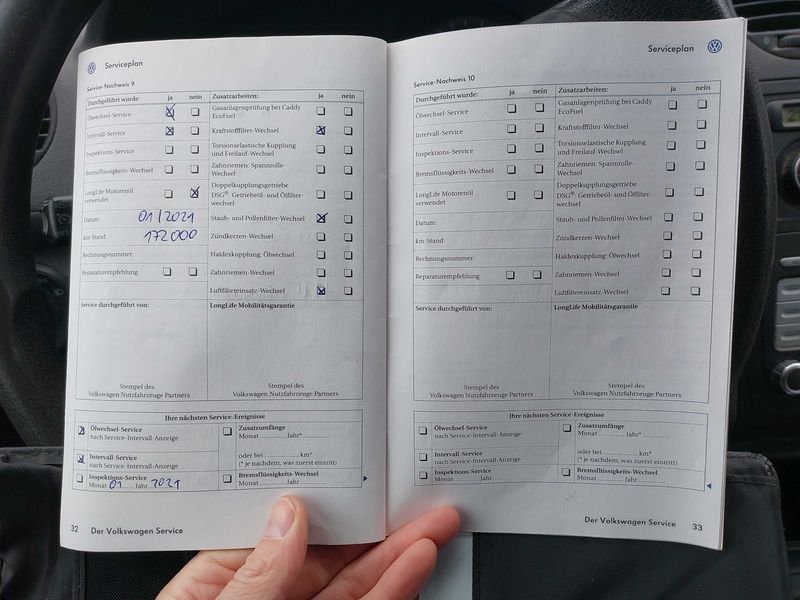 Serviceplan
Service-Nachweis 9
Durchgeführt wurde: ja nein Zusatzarbeiten: ja nein
Ölwechsel-Service
Gasanlagenprüfung bei Caddy
EcoFuel
Intervall-Service
Kraftstofffilter-Wechsel
Inspektions-Service
Torsionselastische Kupplung
und Freilauf-Wechsel
Bremsflüssigkeits-Wechsel
Zahnriemen: Spannrolle-
Wechsel
LongLife Motorenöl
verwendet
Doppelkupplungsgetriebe
DSG®: Getriebeöl- und Ölfilter-
wechsel
Datum: 01/2021
Staub- und Pollenfilter-Wechsel
km-Stand: 172000
Zündkerzen-Wechsel
Rechnungsnummer:
Haldexkupplung: Ölwechsel
Reparaturempfehlung
Zahnriemen-Wechsel
Luftfiltereinsatz-Wechsel
Service durchgeführt von:
LongLife Mobilitätsgarantie
Stempel des
Volkswagen Nutzfahrzeuge Partners
Stempel des
Volkswagen Nutzfahrzeuge Partners
Ihre nächsten Service-Ereignisse
Ölwechsel-Service
nach Service-Intervall-Anzeige
Zusatzumfänge
Monat ........ Jahr*........
Intervall-Service
nach Service-Intervall-Anzeige
oder bei ........ km*
(* je nachdem, was zuerst eintritt)
Inspektions-Service
Monat 01 Jahr 2021
Bremsflüssigkeits-Wechsel
Monat ........ Jahr ........
32 Der Volkswagen Service
Serviceplan
Service-Nachweis 10
Durchgeführt wurde: ja nein Zusatzarbeiten: ja nein
Ölwechsel-Service
Gasanlagenprüfung bei Caddy
EcoFuel
Intervall-Service
Kraftstofffilter-Wechsel
Inspektions-Service
Torsionselastische Kupplung
und Freilauf-Wechsel
Bremsflüssigkeits-Wechsel
Zahnriemen: Spannrolle-
Wechsel
LongLife Motorenöl
verwendet
Doppelkupplungsgetriebe
DSG®: Getriebeöl- und Ölfilter-
wechsel
Datum:
Staub- und Pollenfilter-Wechsel
km-Stand:
Zündkerzen-Wechsel
Rechnungsnummer:
Haldexkupplung: Ölwechsel
Reparaturempfehlung
Zahnriemen-Wechsel
Luftfiltereinsatz-Wechsel
Service durchgeführt von:
LongLife Mobilitätsgarantie
Stempel des
Volkswagen Nutzfahrzeuge Partners
Stempel des
Volkswagen Nutzfahrzeuge Partners
Ihre nächsten Service-Ereignisse
Ölwechsel-Service
nach Service-Intervall-Anzeige
Zusatzumfänge
Monat ........ Jahr*........
Intervall-Service
nach Service-Intervall-Anzeige
oder bei ........ km*
(* je nachdem, was zuerst eintritt)
Inspektions-Service
Monat ........ Jahr ........
Bremsflüssigkeits-Wechsel
Monat ........ Jahr ........
Der Volkswagen Service 33